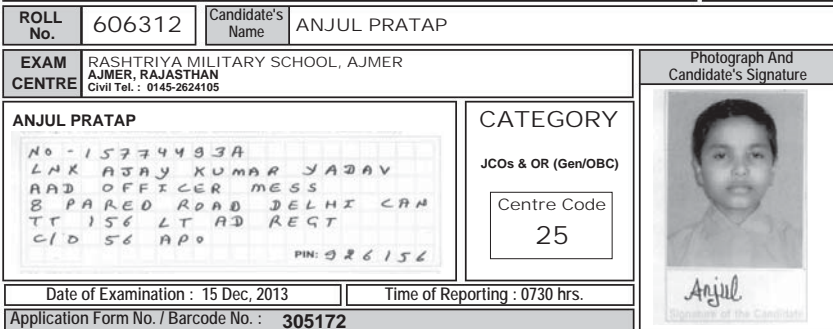 ROLL No. 606312 Candidate's Name ANJUL PRATAP
EXAM CENTRE RASHTRIYA MILITARY SCHOOL, AJMER
AJMER, RAJASTHAN
Civil Tel. : 0145-2624105
Photograph And
Candidate's Signature
ANJUL PRATAP
NO - 15774493A
LNK AJAY KUMAR YADAV
AAD OFFICER MESS
8 PARED ROAD DELHI CAN
TT 156 LT AD REGT
C/O 56 APO
PIN: 926156
CATEGORY
JCOs & OR (Gen/OBC)
Centre Code
25
Anjul
Signature of the Candidate
Date of Examination : 15 Dec, 2013 Time of Reporting : 0730 hrs.
Application Form No. / Barcode No. : 305172